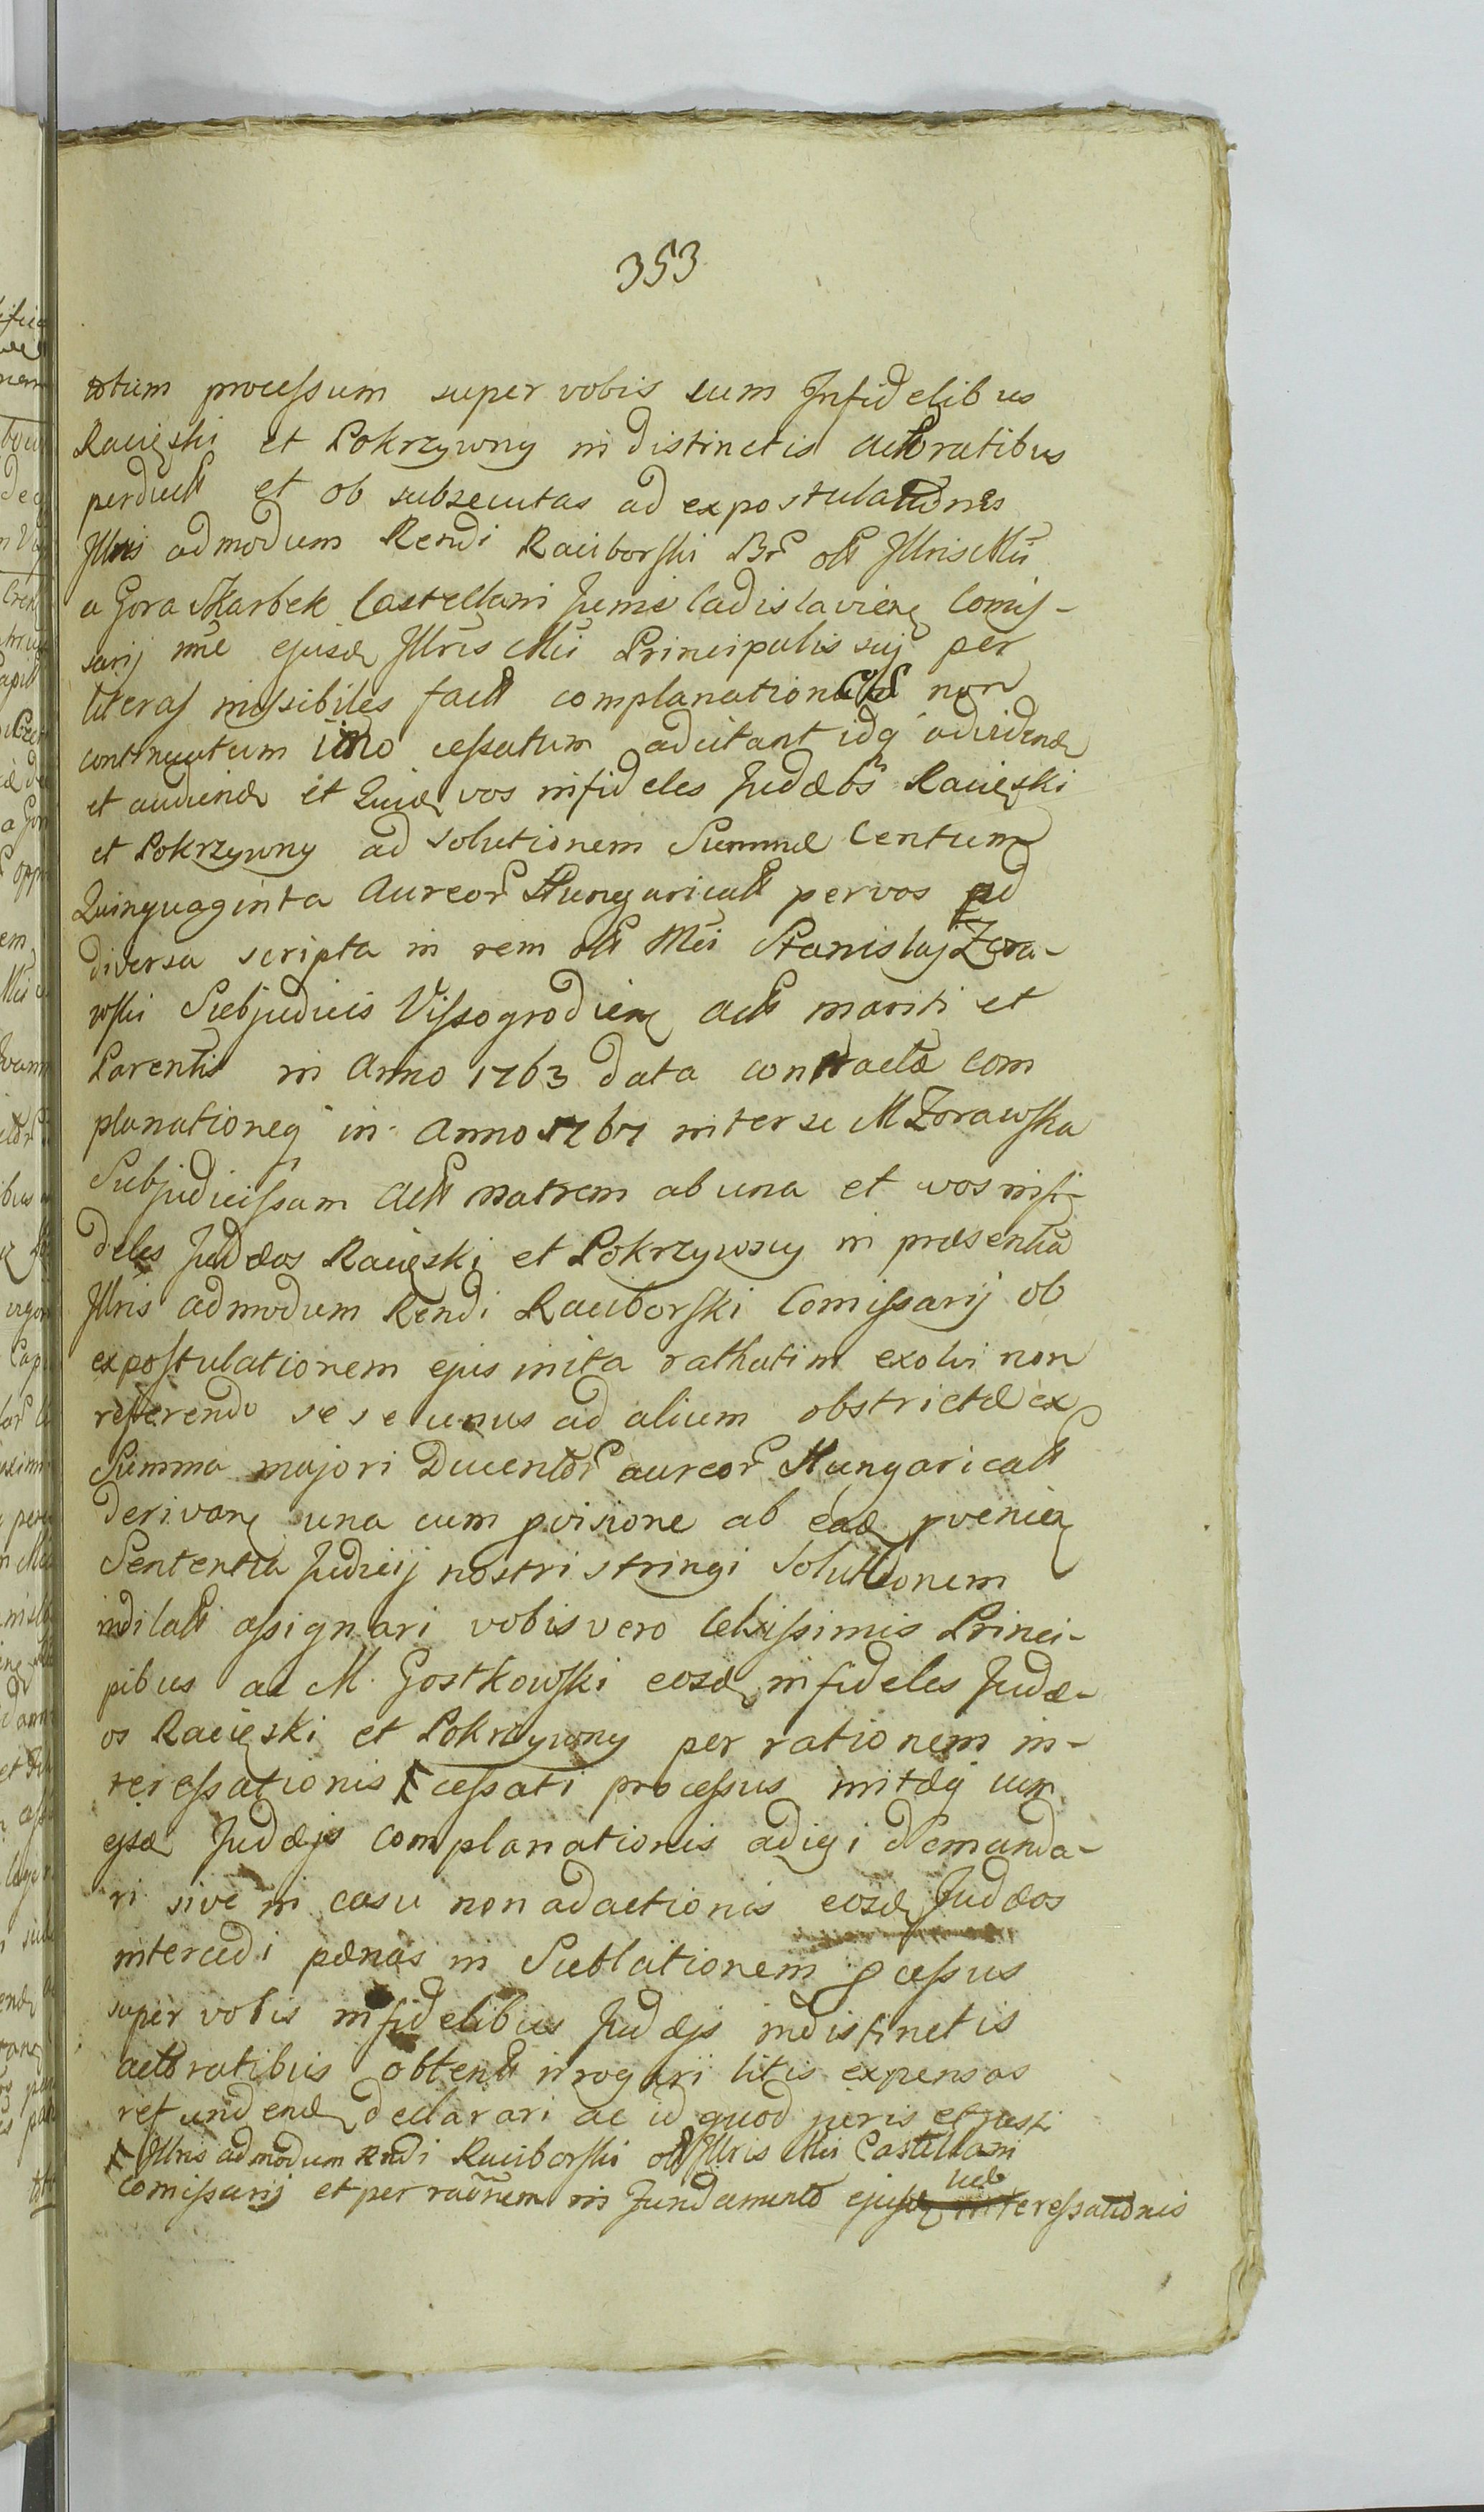 353
totum processum super vobis cum Infidelibus
Racięski et Pokrzywny indistinctis actoratibus
perduct et ob subsecutas ad expostulationes
Illris admodum Rendi Raciborski Br olt Illris Mci
a Gora Skarbek Castellani Junic ladislavien Comis-
sarij nne ejusd Illris Mci Principalis suj per
literas missibiles fact complanationes non
continuatum imo cessatum ad citant idq ad vidend
et audiend et Quid vos infideles Judæos Racięski
et Pokrzywny ad solutionem Summæ Centum
Quinquaginta Aureor Hungaricall per vos ad
diversa scripta in rem olt Mci Stanislaj Zora-
wski Subjudicis Vissogrodien act mariti et
Parentis in Anno 1763 data contracta com
planationeq in Anno 1767 inter se M Zorawska
Subjudicissam act matrem ab una et vos infi-
deles Judæos Racięski et Pokrzywny in præsentia
Illris admodum Rendi Raciborski Comissarij ob
expostulationem ejus inita rathatim exolvi non
referendo se se unus ad alium obstrictæ ex
Summa majori Ducentor aureor Hungaricall
derivan una cum pvisione ab ead pvenien
Sententia Judicij nostri stringi Solutionem
indilatt assignari vobis vero Celsissimis Princi-
pibus ac M. Gostkowski eosd infideles Judæ-
os Racięski et Pokrzywny per rationem in-
teressationis cessati processus initæq cum
ijsd Judæjs complanationis adigi demanda-
ri sive in casu non adactionis eosd Judæos
intercedi pænas in Sublationem pcessus
super vobis infidelibus Judæjs indistinctis
actoratibus obtent irrogari litis expensas
refundend declarari ac id quod juris et justi
Illris admodum Rndi Raciborski olt Illris Mci Castellani
Comissarij et per raonem in Fundamento ejusd interessationis